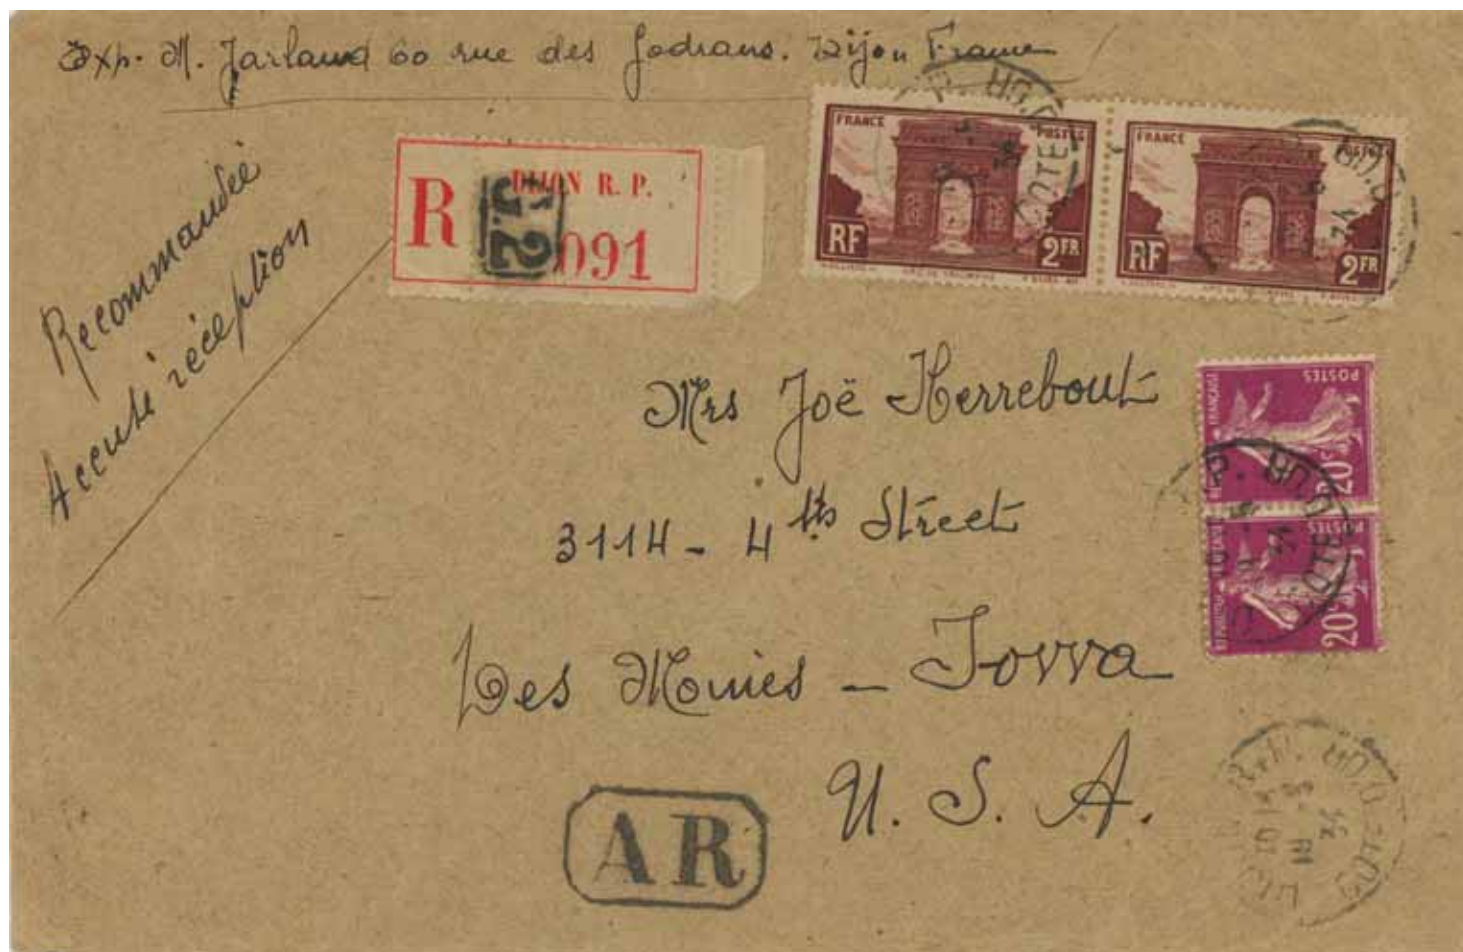 Exp. M. Jarland 60 rue des Godrans. Dijon France
Recommandée
Accusé réception
R
DIJON R. P.
J.2
091
FRANCE
POSTES
RF
2FR
FRANCE
POSTES
RF
2FR
Mrs Joë Herrebout
3114 - 4ths Street
Des Moines - Iowa
U. S. A.
POSTES
FRANÇAISE
20c
POSTES
20c
COTE D'OR
COTE D'OR
COTE D'OR
AR